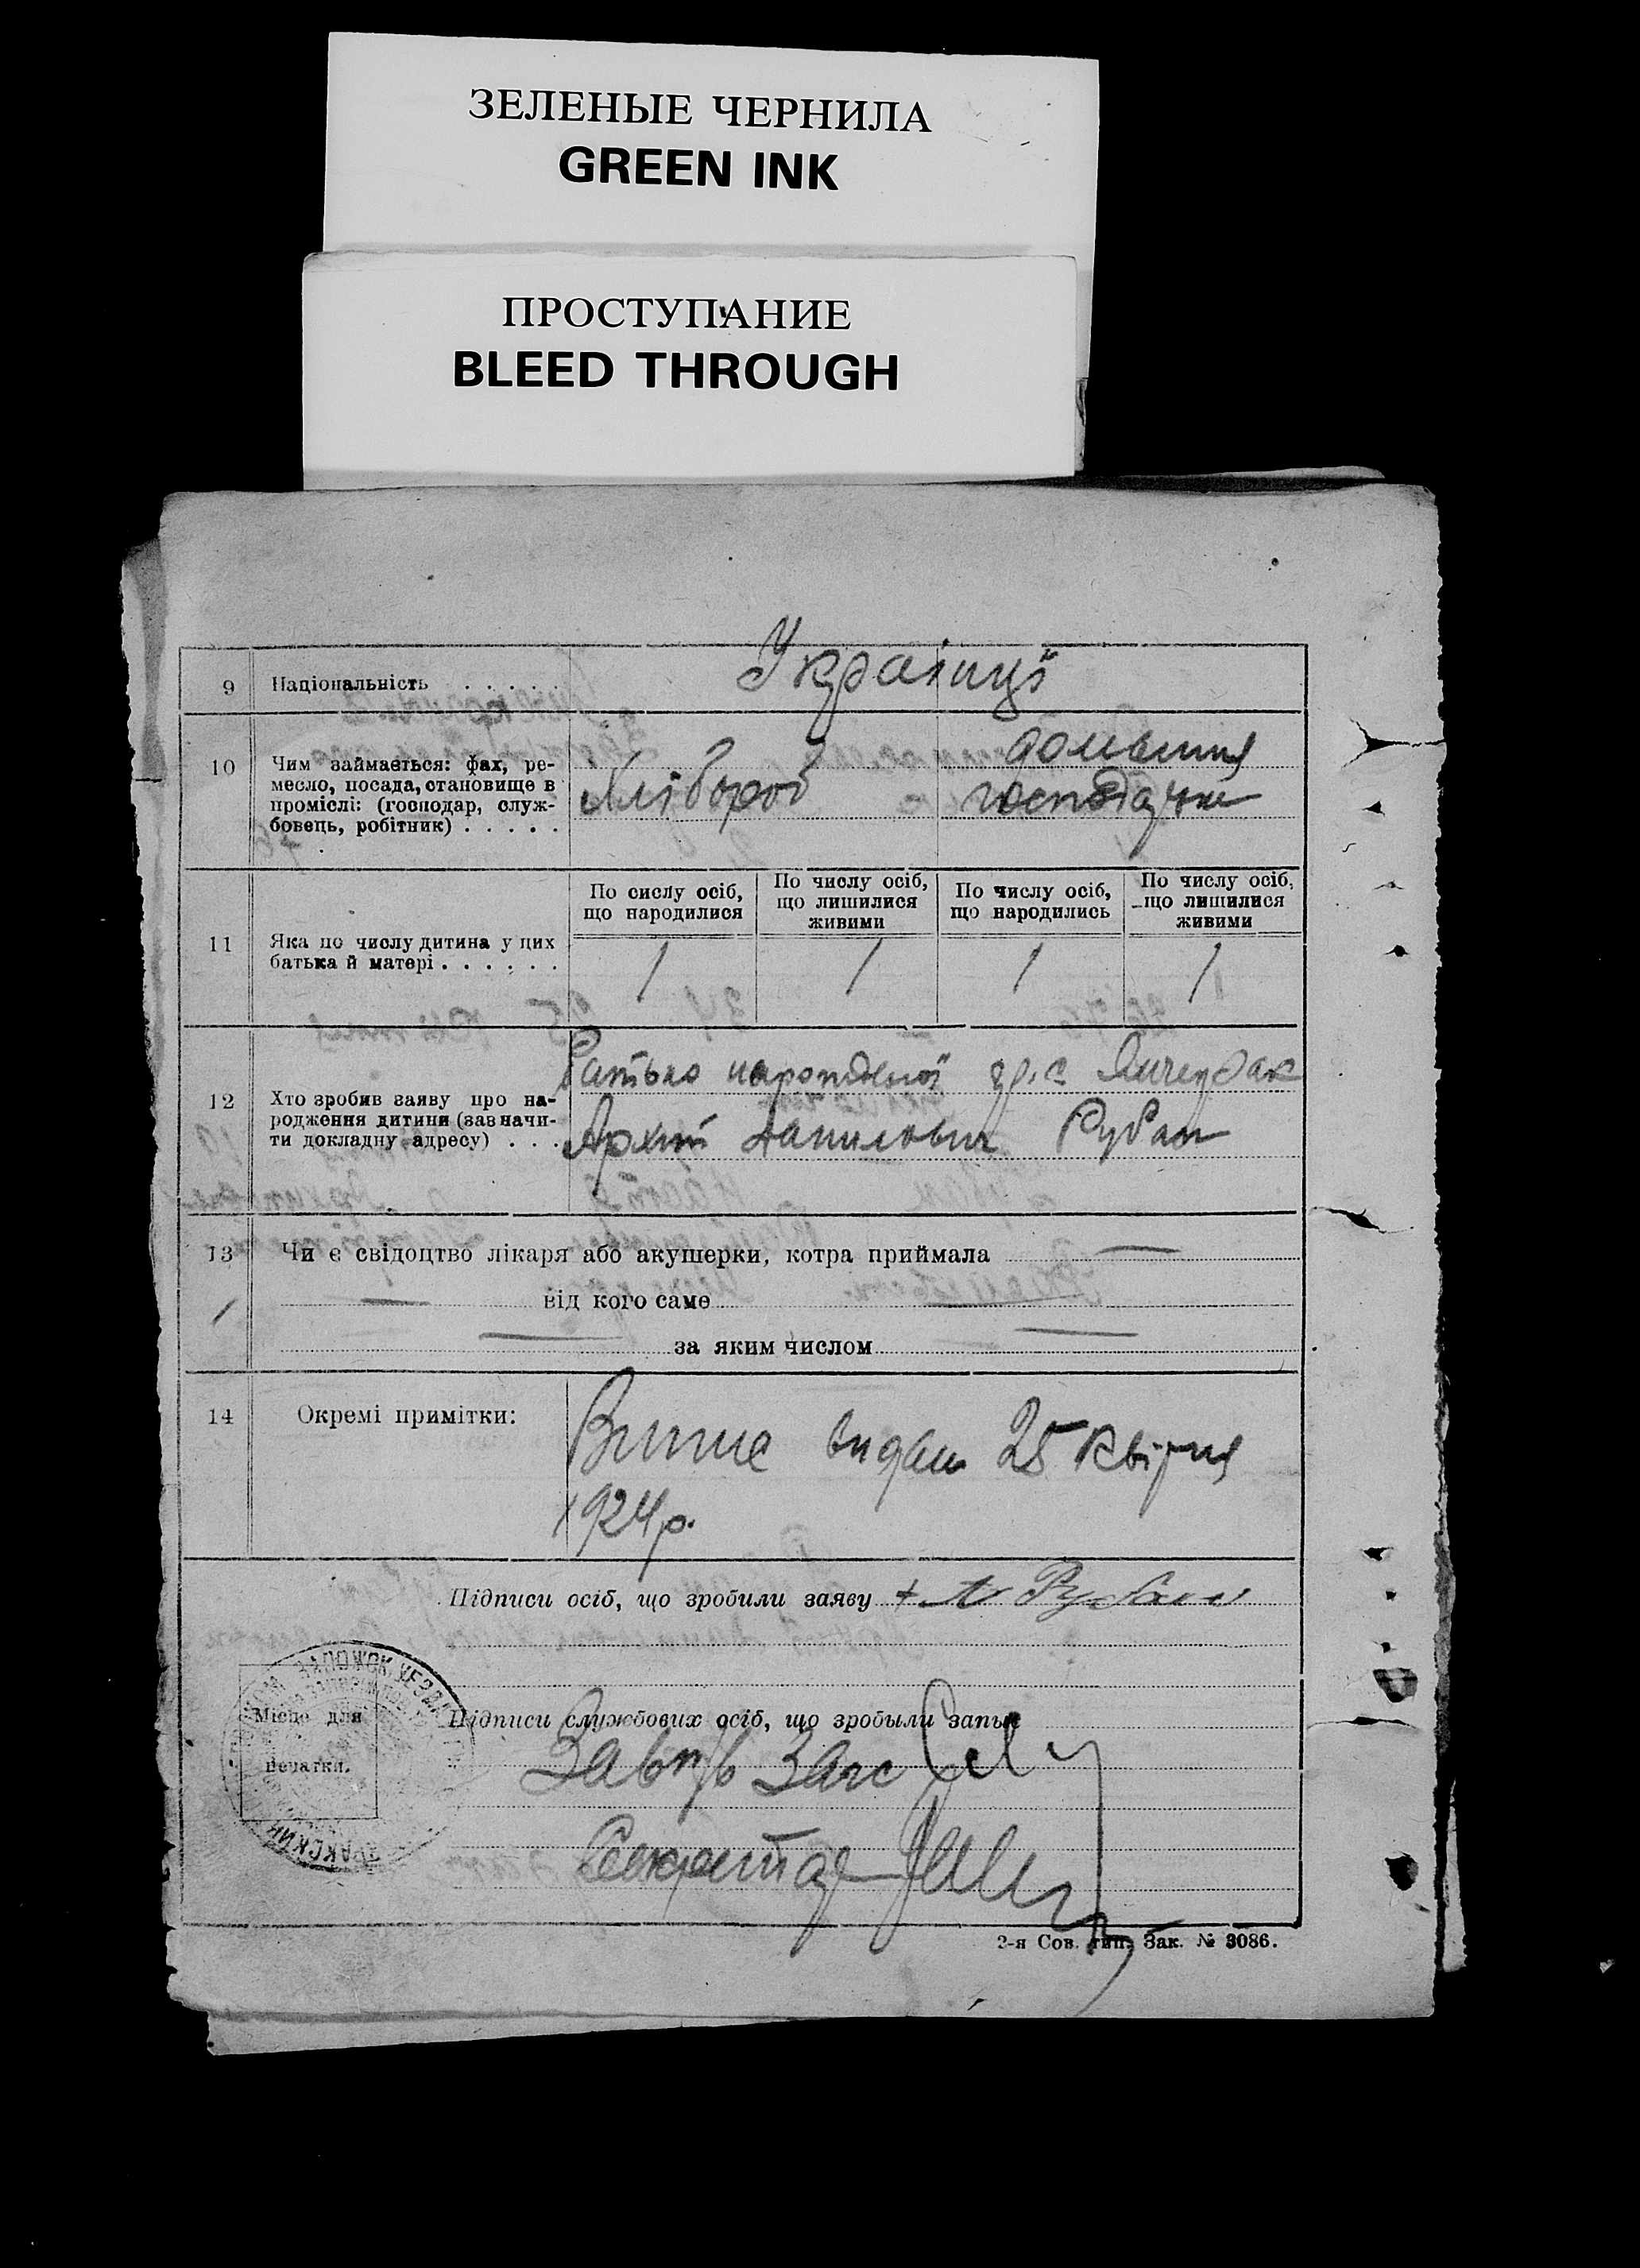 ЗЕЛЕНЫЕ ЧЕРНИЛА
GREEN INK
ПРОСТУПАНИЕ
BLEED THROUGH
9 Національність . . . . . Українці
10 Чим займається: фах, ре-
месло, посада, становище в
проміслі: (господар, служ-
бовець, робітник) . . . . .
Хлібороб
домашня
господарка
По сислу осіб,
що народилися
По числу осіб,
що лишилися
живими
По числу осіб,
що народились
По числу осіб,
що лишилися
живими
11 Яка по числу дитина у цих
батька й матері . . . . . .
1 1 1 1
12 Хто зробив заяву про на-
родження дитини (зазначи-
ти докладну адресу) . . .
Батько народженої гр. с.
Архип Данилович Рубан
13 Чи є свідоцтво лікаря або акушерки, котра приймала —
— від кого саме —
— за яким числом —
14 Окремі примітки:
видан 25 квітня
1924 р.
Підписи осіб, що зробили заяву + А Рубан
Місце для
печатки.
Підписи службових осіб, що зробыли запыс
Завп/в Загс
Секретар
2-я Сов. тип. Зак. № 3086.